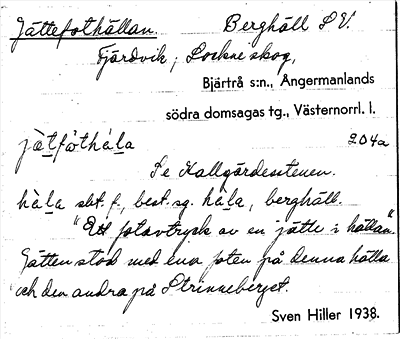 Jättefothällan. Berghäll S.V.
Fjärdvik, Lockne skog,
Bjärtrå s:n., Ångermanlands
södra domsagas tg., Västernorrl. l.
jätfòthäla 204a
Se Kallgärdesstenen.
häla sbt. f., best. sg. häla, berghäll.
"Ett fotavtryck av en jätte i hällan".
Jätten stod med ena foten på denna hälla
och den andra på Strinneberget.
Sven Hiller 1938.